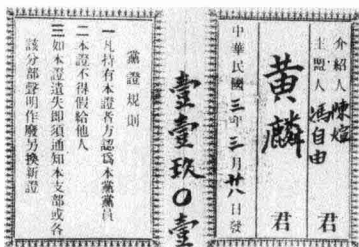 介紹人陳煊
主盟人馮自由 君
黃麟 君
中華民國三年三月廿八日發
壹壹玖〇壹
黨證規則
一凡持有本證者方認爲本黨黨員
二本證不得假給他人
三如本證遺失即須通知本支部或各
該分部聲明作廢另換新證